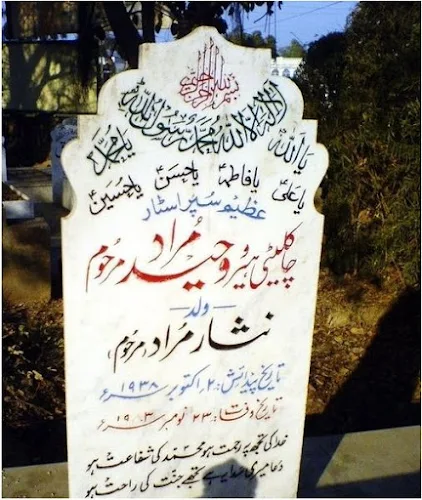 بسم اللہ الرحمن الرحیم
لا الہ الا اللہ محمد رسول اللہ
یا اللہ یا محمد
یا علیؑ یا فاطمہؑ یا حسنؑ یا حسینؑ
عظیم سپر اسٹار
چاکلیٹی ہیرو وحید مراد مرحوم
ولد
نثار مراد (مرحوم)
تاریخ پیدائش: ۲ اکتوبر ۱۹۳۸ء
تاریخ وفات: ۲۳ نومبر ۱۹۸۳ء
خدا کی تجھ پر رحمت ہو محمدؐ کی شفاعت ہو
دعا میری خدا سے ہے تجھے جنت کی راحت ہو